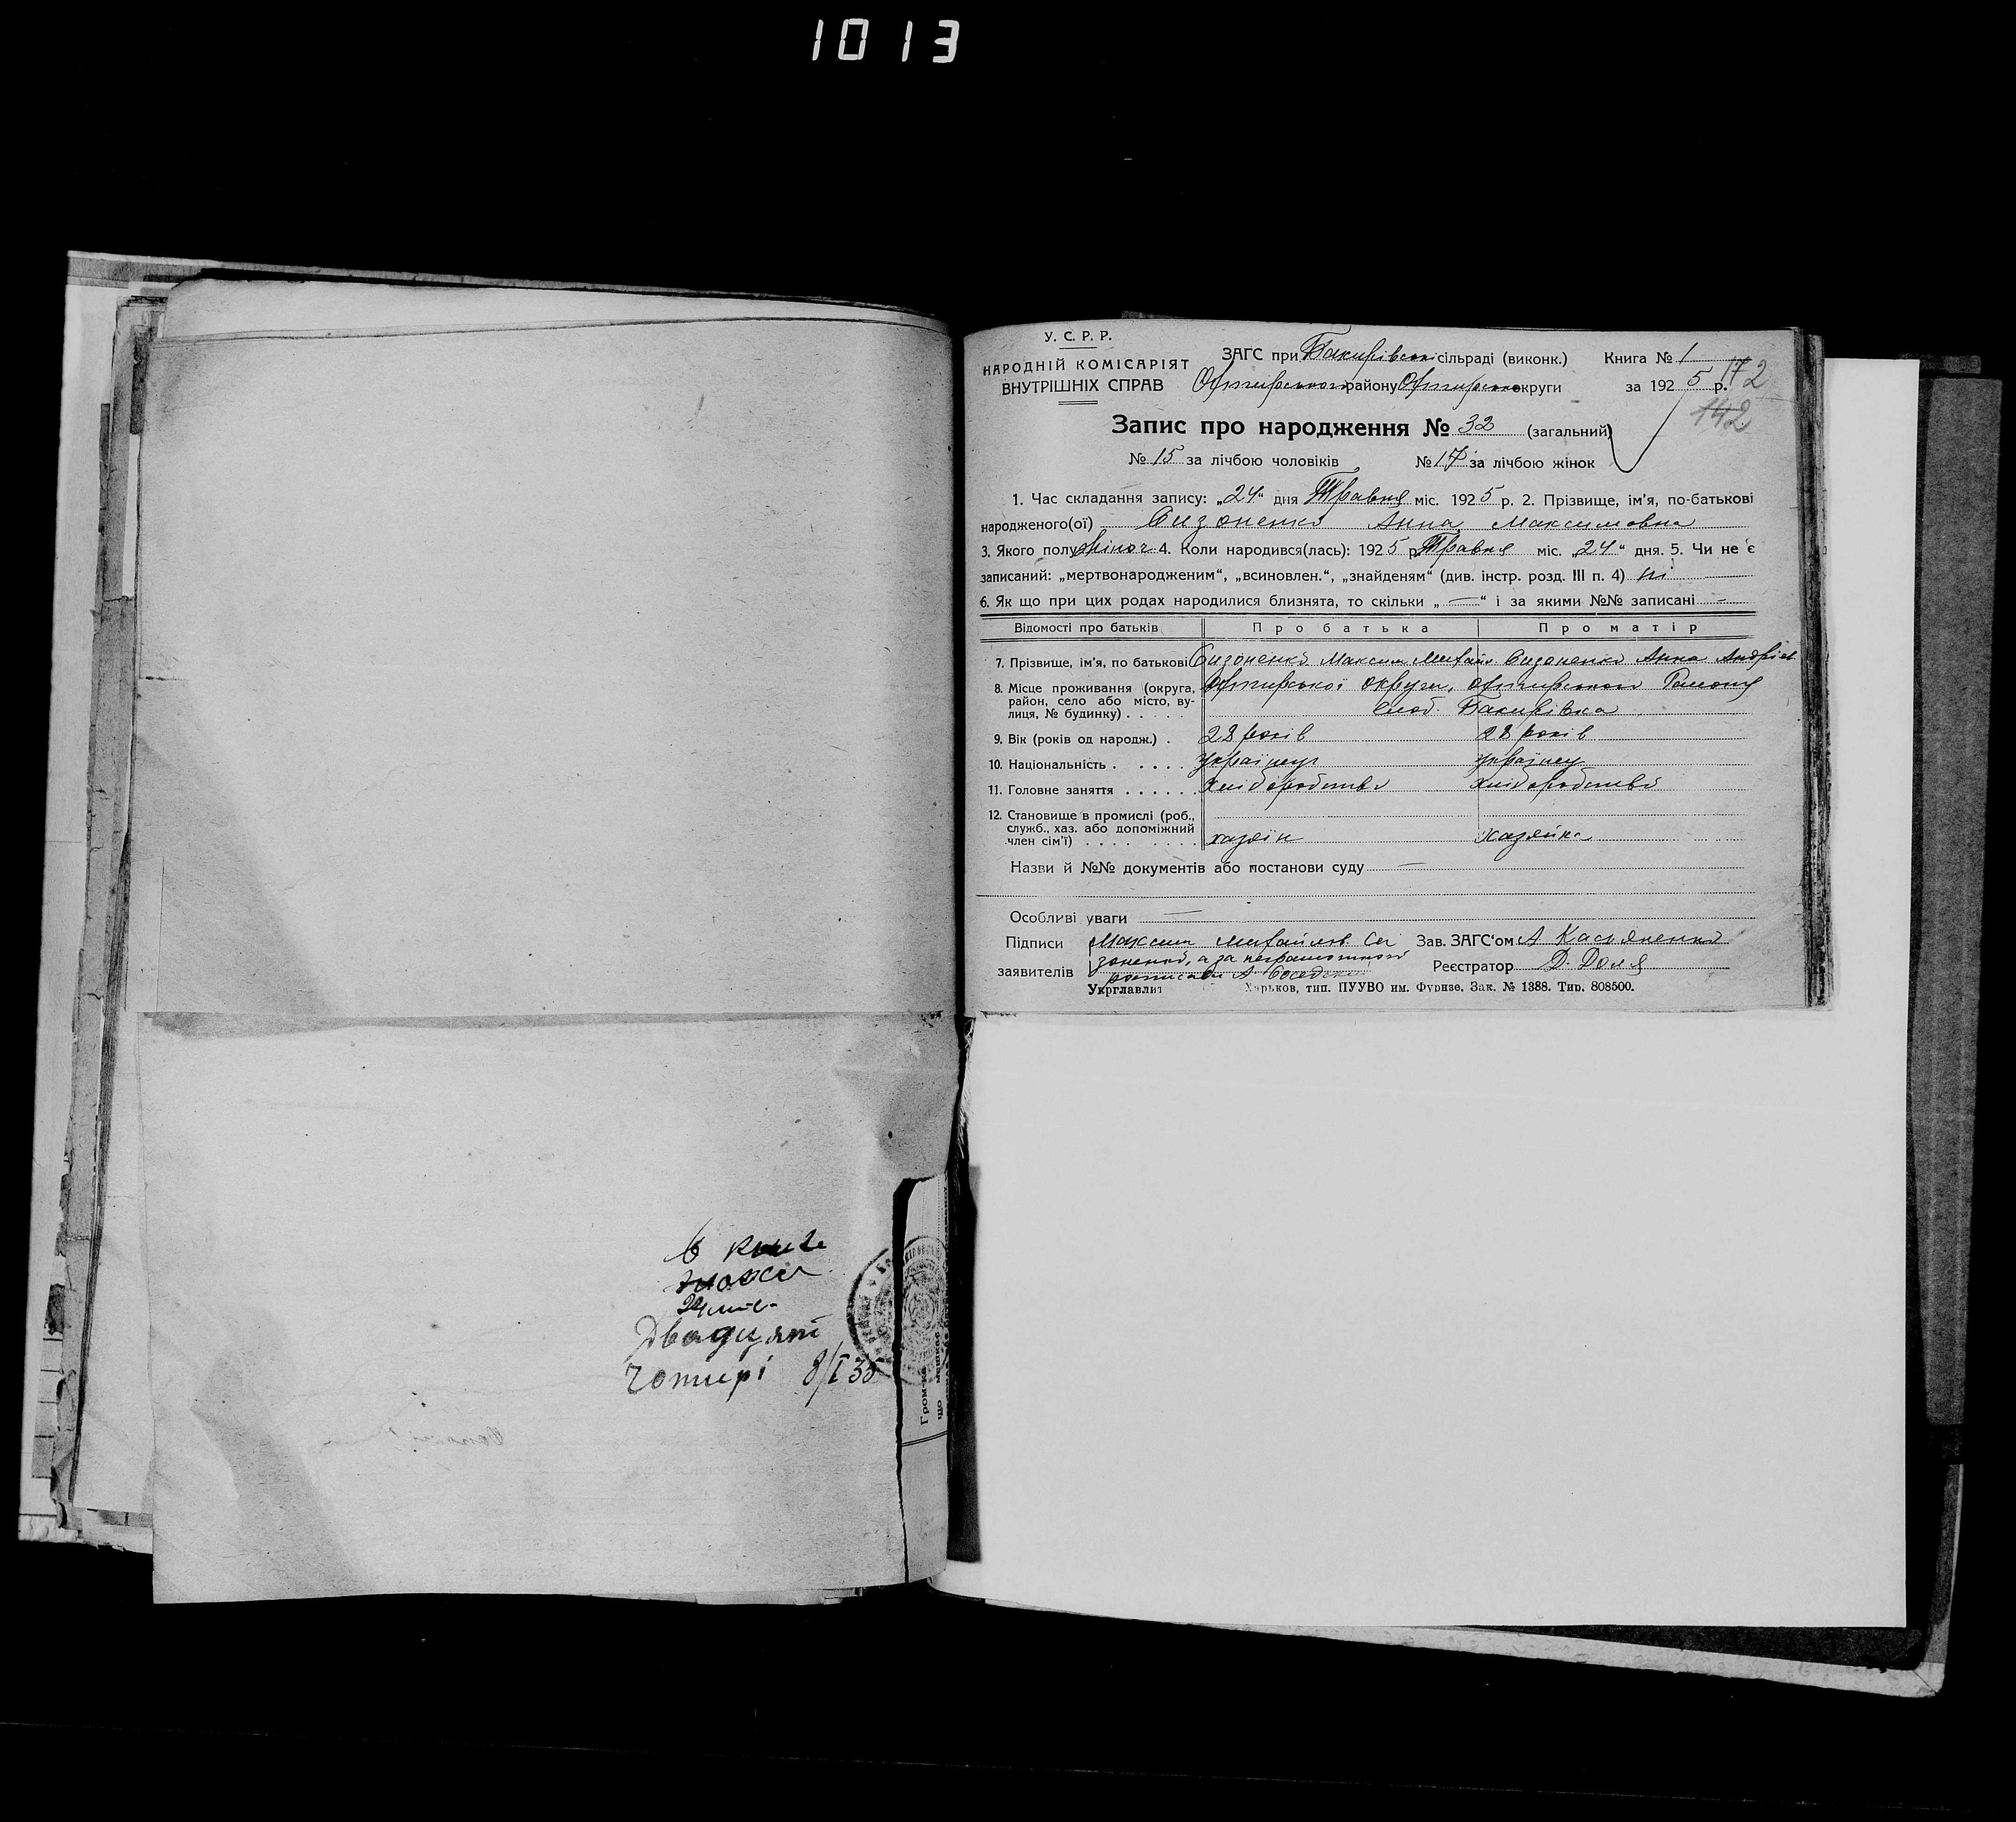 1013
У. С. Р. Р.
НАРОДНІЙ КОМІСАРІЯТ
ВНУТРІШНІХ СПРАВ
ЗАГС при Бакирівськ сільраді (виконк.) Книга № 1
Охтирського району Охтирськ округи за 1925 р. 172
142
Запис про народження № 32 (загальний)
№ 15 за лічбою чоловіків № 17 за лічбою жінок
1. Час складання запису: „24“ дня Травня міс. 1925 р. 2. Прізвище, ім’я, по-батькові
народженого(ої) Сизоненко Анна Максимовна
3. Якого полу жіноч 4. Коли народився(лась): 1925 р Травня міс. „24“ дня. 5. Чи не є
записаний: „мертвонародженим“, „всиновлен.“, „знайденям“ (див. інстр. розд. III п. 4) ні
6. Як що при цих родах народилися близнята, то скільки „—“ і за якими №№ записані —
Відомості про батьків Про батька Про матір
7. Прізвище, ім’я, по батькові Сизоненко Максим Михайл Сизоненко Анна Андріев
8. Місце проживання (округа, район, село або місто, вулиця, № будинку) Охтирської округи, Охтирського Району
слоб. Бакирівка
9. Вік (років од народж.) 28 років 28 років
10. Національність українец українец
11. Головне заняття Хліборобство Хліборобство
12. Становище в промислі (роб., служб., хаз. або допоміжний член сім’ї) хазяін Хазяйка
Назви й №№ документів або постанови суду —
Особливі уваги —
Підписи заявителів Максим Михайлов Си
зоненко, а за неграмотного
росписався А
Зав. ЗАГС‘ом А Касьяненко
Реєстратор Д. Доля
Укрглавліт Харьков, тип. ПУУВО им. Фрунзе. Зак. № 1388. Тир. 808500.
В книге
24
Двадцят
Чотирі 8/I 35
Гром-
що мешкає